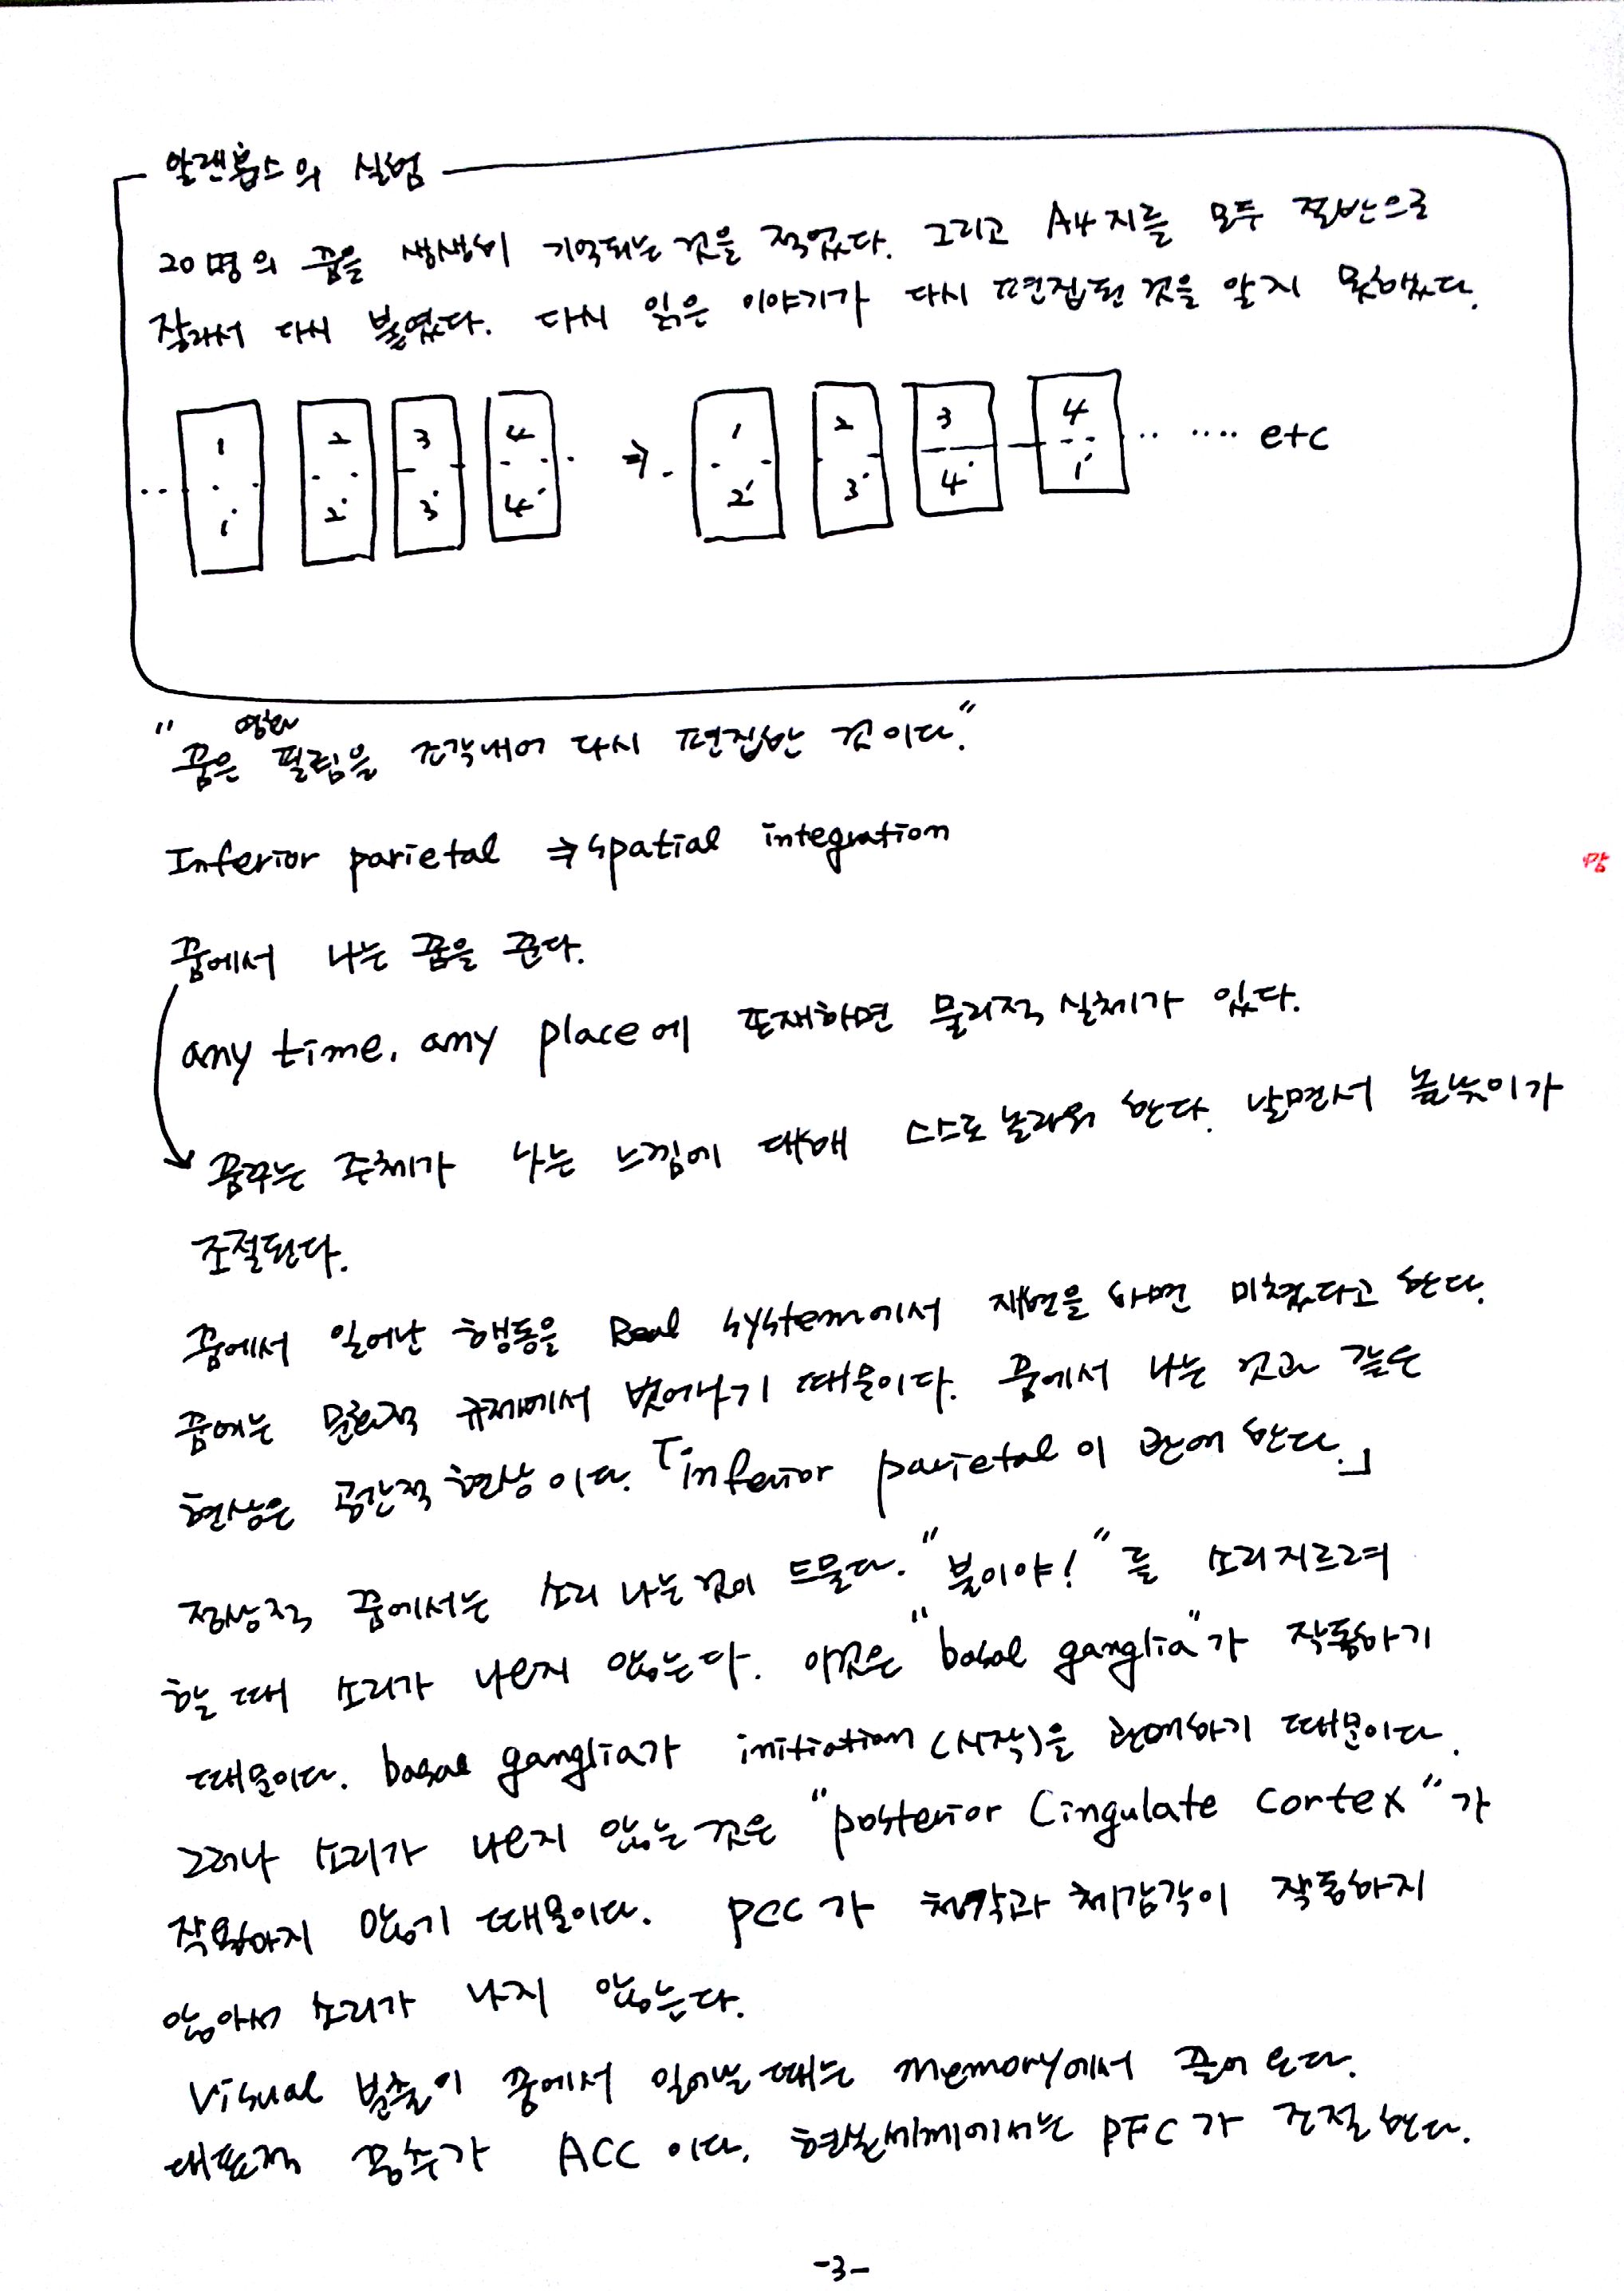 알랜홉스의 실험
20명의 꿈을 생생히 기억되는 것을 적었다. 그리고 A4지를 모두 절반으로
잘라서 다시 붙였다. 다시 읽은 이야기가 다시 편집된 것을 알지 못했다.
1 2 3 4 ⇒ 1 2 3 4 ‥ ‥‥ etc
1' 2' 3' 4' 2' 3' 4' 1'
영화
"꿈은 필림을 조각내어 다시 편집한 것이다."
Inferior parietal ⇒ spatial integration
맘
꿈에서 나는 꿈을 꾼다.
any time, any place에 존재하면 물리적 실체가 있다.
꿈꾸는 주체가 나는 느낌에 대해 스스로 놀라워 한다. 날면서 높낮이가
조절된다.
꿈에서 일어난 행동을 Real system에서 재현을 하면 미쳤다고 한다.
꿈에는 물리적 규제에서 벗어나기 때문이다. 꿈에서 나는 것과 같은
현상은 공간적 현상이다. 「inferior parietal이 관여 한다.」
정상적 꿈에서는 소리 나는 것이 드물다. "불이야!"를 소리지르려
할 때 소리가 나오지 않는다. 이것은 "basal ganglia"가 작동하기
때문이다. basal ganglia가 initiation (시작)을 관여하기 때문이다.
그러나 소리가 나오지 않는 것은 "posterior Cingulate cortex"가
작용하지 않기 때문이다. PCC가 청각과 체감각이 작동하지
않아서 소리가 나지 않는다.
Visual 분출이 꿈에서 일어날 때는 memory에서 끌어 온다.
대표적 꿍수가 ACC이다. 현실세계에서는 PFC가 조절한다.
-3-